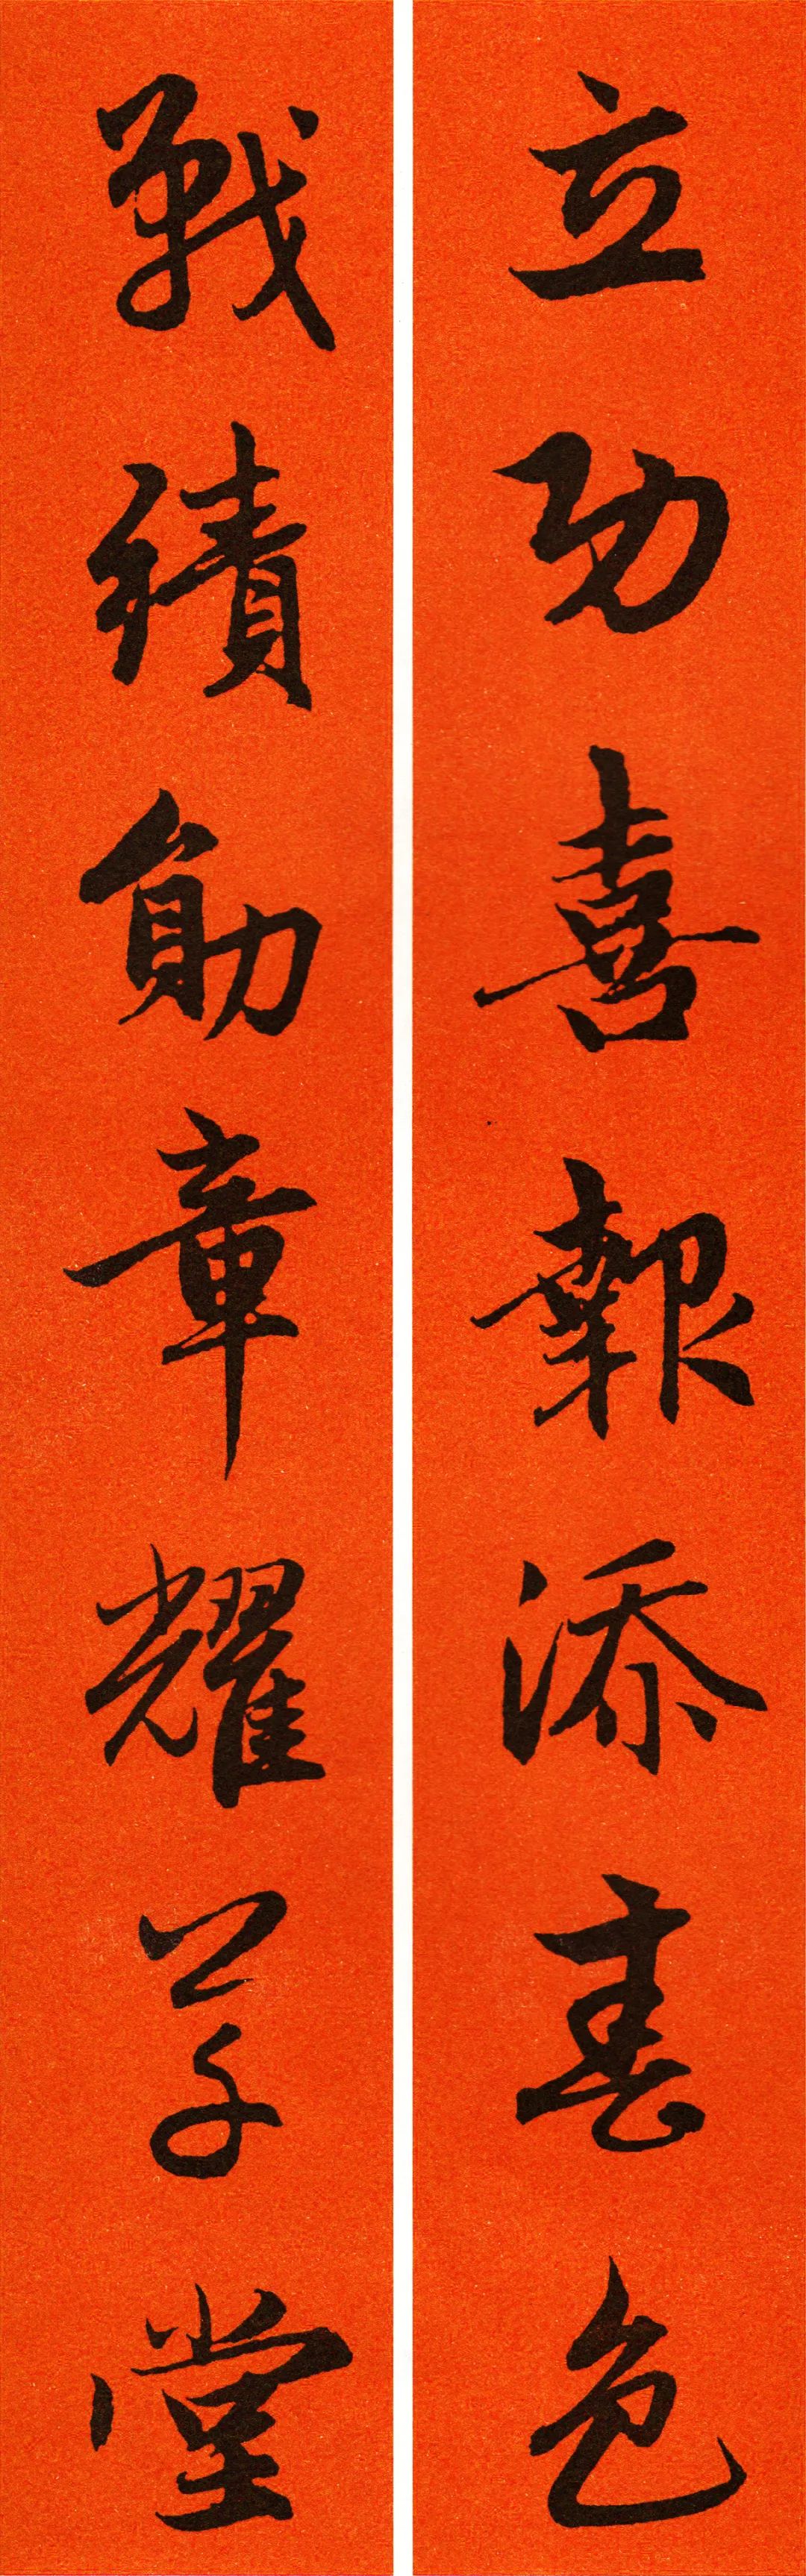 立功喜報添春色
戰績勛章耀堂